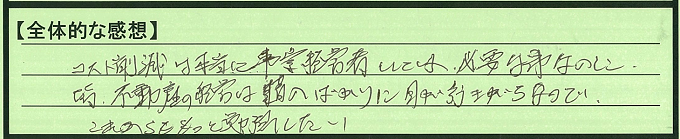 【全体的な感想】
コスト削減は本当に事業経営者としては、必要な事なのに、
皆、不動産の経営は額のばかりに目が行きがちなので、
これからももっと勉強したい！